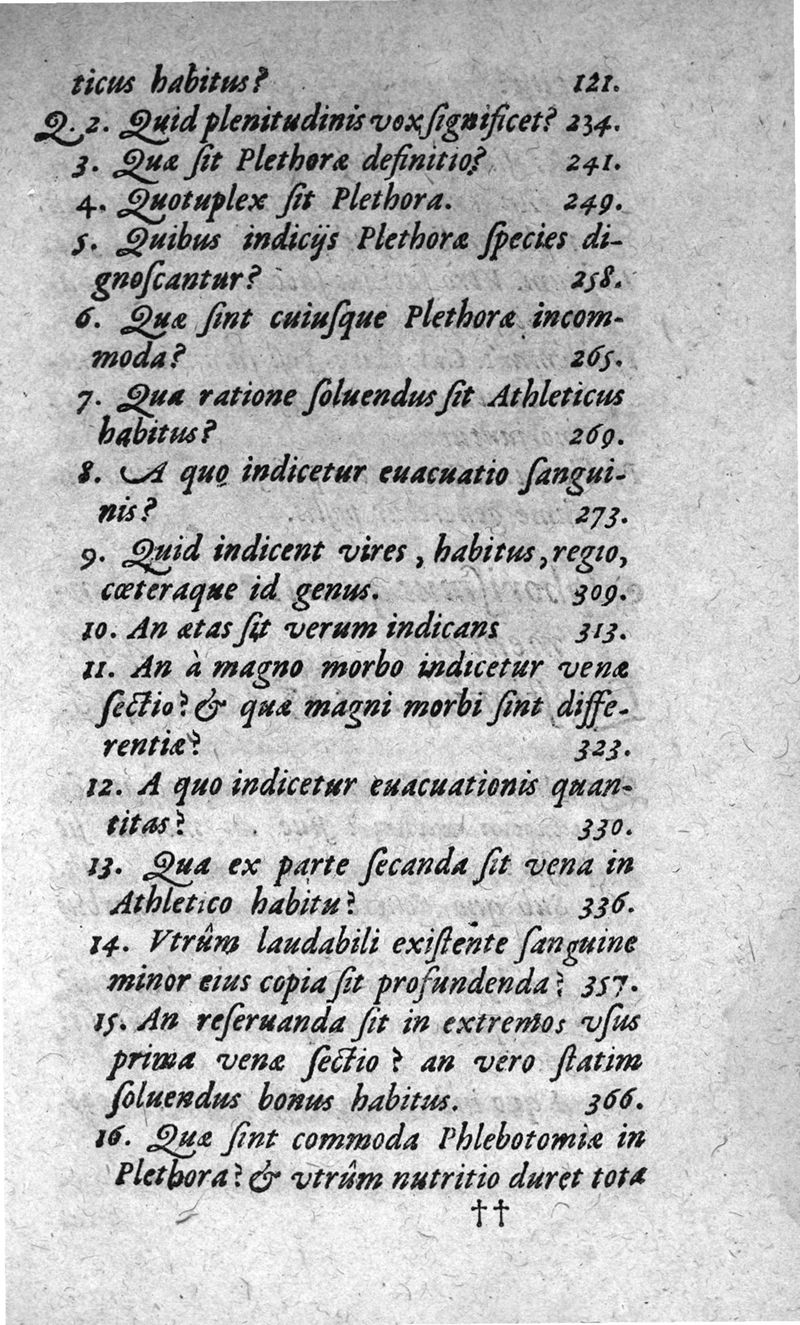 ticus habitus? 121.
Q. 2. Quid plenitudinis vox ſignificet? 234.
3. Quæ ſit Plethoræ definitio? 241.
4. Quotuplex ſit Plethora. 249.
5. Quibus indicijs Plethoræ ſpecies di-
gnoſcantur? 258.
6. Quæ ſint cuiuſque Plethoræ incom-
moda? 265.
7. Qua ratione ſoluendus ſit Athleticus
habitus? 269.
8. A quo indicetur euacuatio ſangui-
nis? 273.
9. Quid indicent vires, habitus, regio,
cœteraque id genus. 309.
10. An ætas ſit verum indicans 313.
11. An à magno morbo indicetur venæ
ſectio? & quæ magni morbi ſint diffe-
rentiæ? 323.
12. A quo indicetur euacuationis quan-
titas? 330.
13. Qua ex parte ſecanda ſit vena in
Athletico habitu? 336.
14. Vtrûm laudabili exiſtente ſanguine
minor eius copia ſit profundenda? 357.
15. An reſeruanda ſit in extremos vſus
prima venæ ſectio? an vero ſtatim
ſoluendus bonus habitus. 366.
16. Quæ ſint commoda Phlebotomiæ in
Plethora? & vtrûm nutritio duret tota
††